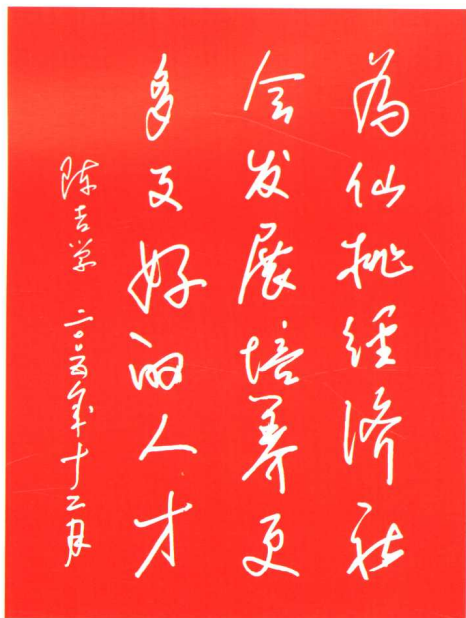 为仙桃经济社
会发展培养更
多更好的人才
陈吉学 二〇〇五年十二月